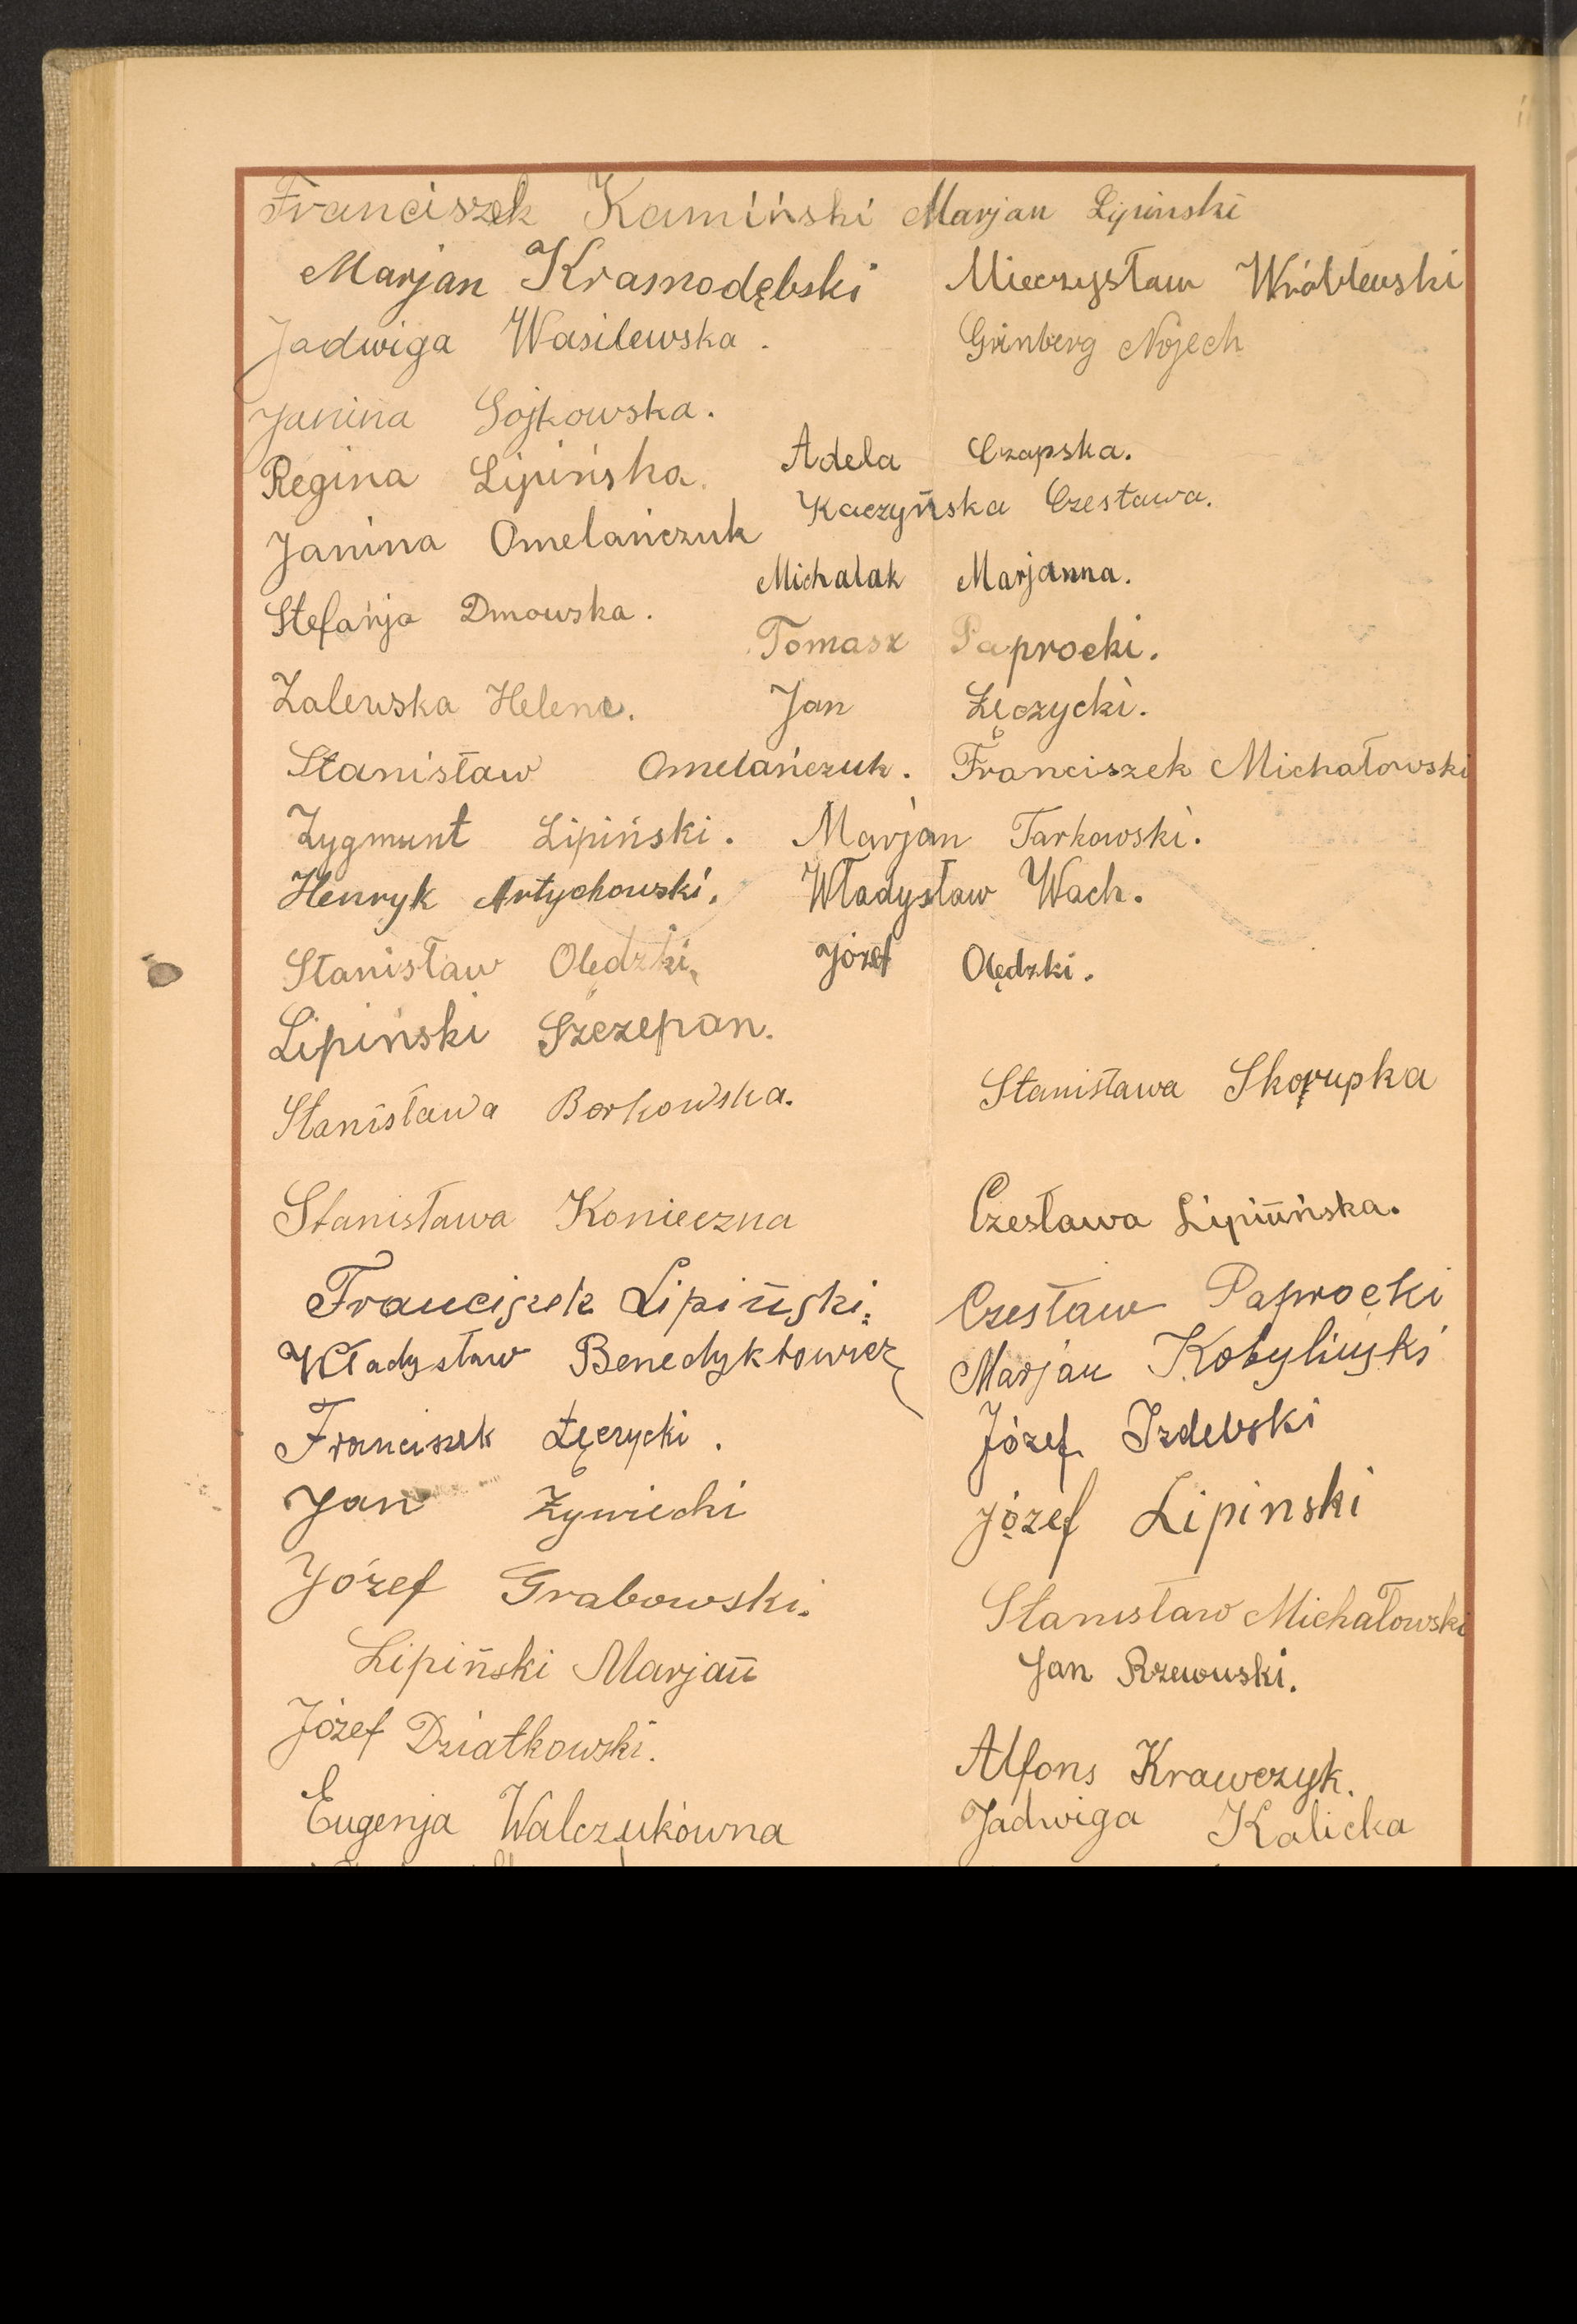 Franciszek Kamiński Marjan Lipinski
Marjan Krasnodębski Mieczysław Wróblewski
Jadwiga Wasilewska. Grinberg Nojech
Janina Sojkowska.
Regina Lipińska. Adela Czapska.
Janina Omelańczuk Kaczyńska Czesława.
Michalak Marjanna.
Stefanja Dmowska.
Tomasz Paprocki.
Zalewska Helena. Jan Łęczycki.
Stanisław Omelańczuk. Franciszek Michałowski
Zygmunt Lipiński. Marjan Tarkowski.
Henryk Artychowski. Władysław Wach.
Stanisław Olędzki, Józef Olędzki.
Lipiński Szczepan.
Stanisława Borkowska. Stanisława Skorupka
Stanisława Konieczna Czesława Lipińńska.
Franciszek Lipiński. Czesław Paprocki
Władysław Benedyktowicz Marjan Kobyliński
Franciszek Łęczycki. Józef Izdebski
Jan Żywiecki Józef Lipinski
Józef Grabowski. Stanisław Michałowski
Lipiński Marjan Jan Rzewuski.
Józef Działkowski.
Alfons Krawczyk.
Eugenja Walczukówna Jadwiga Kalicka